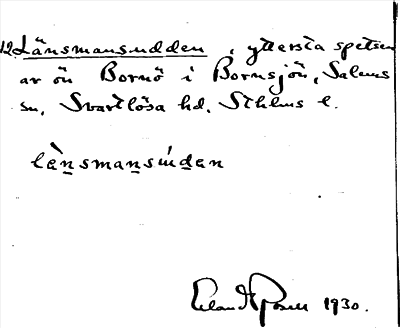 12 Länsmansudden, yttersta spetsen
av ön Bornö i Bornsjön, Salems
sn, Svartlösa hd, Sthlms l.
lä̀n̲sman̲súd̲en
Erland Rosell 1930.